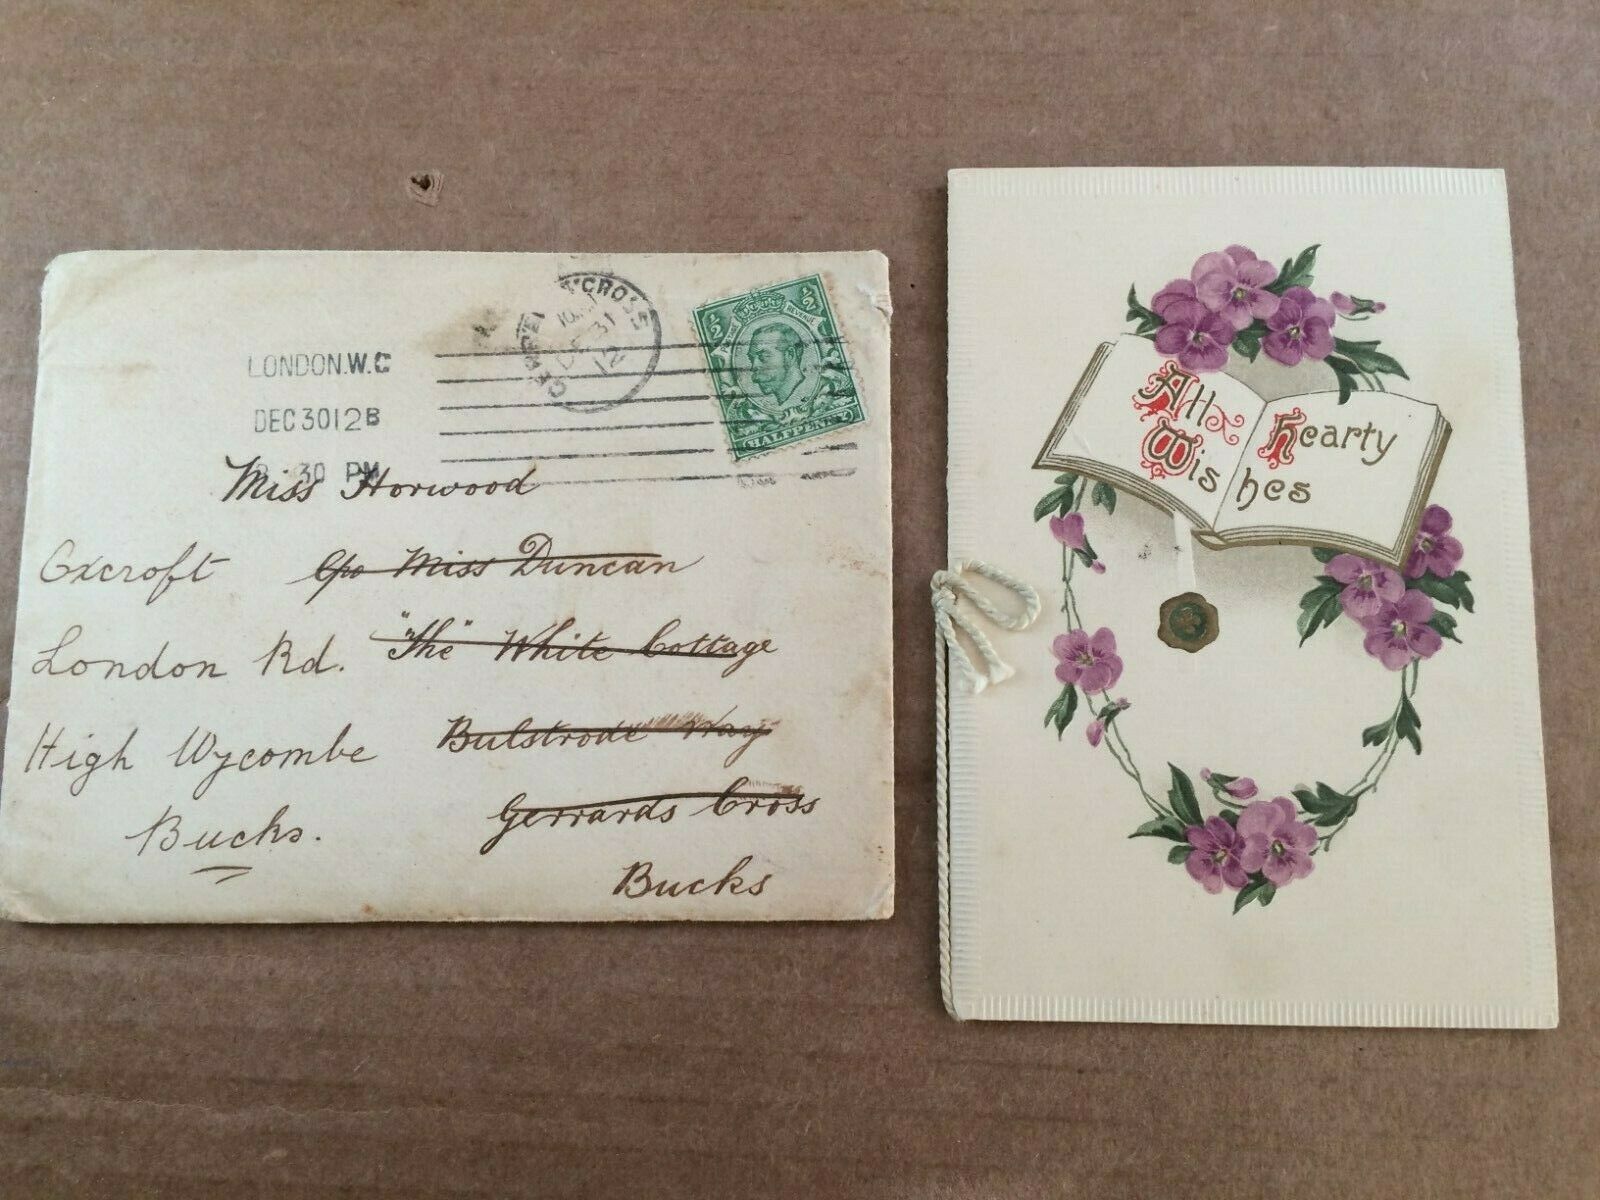 LONDON.W.C
DEC 30 12 B
30 PM
GERRARDS CROSS
31
12
½ ½
POSTAGE REVENUE
HALFPENNY
Miss Horwood
c/o Miss Duncan
"The" White Cottage
Bulstrode Way
Gerrards Cross
Bucks
Oxcroft
London Rd.
High Wycombe
Bucks.
All hearty
Wishes